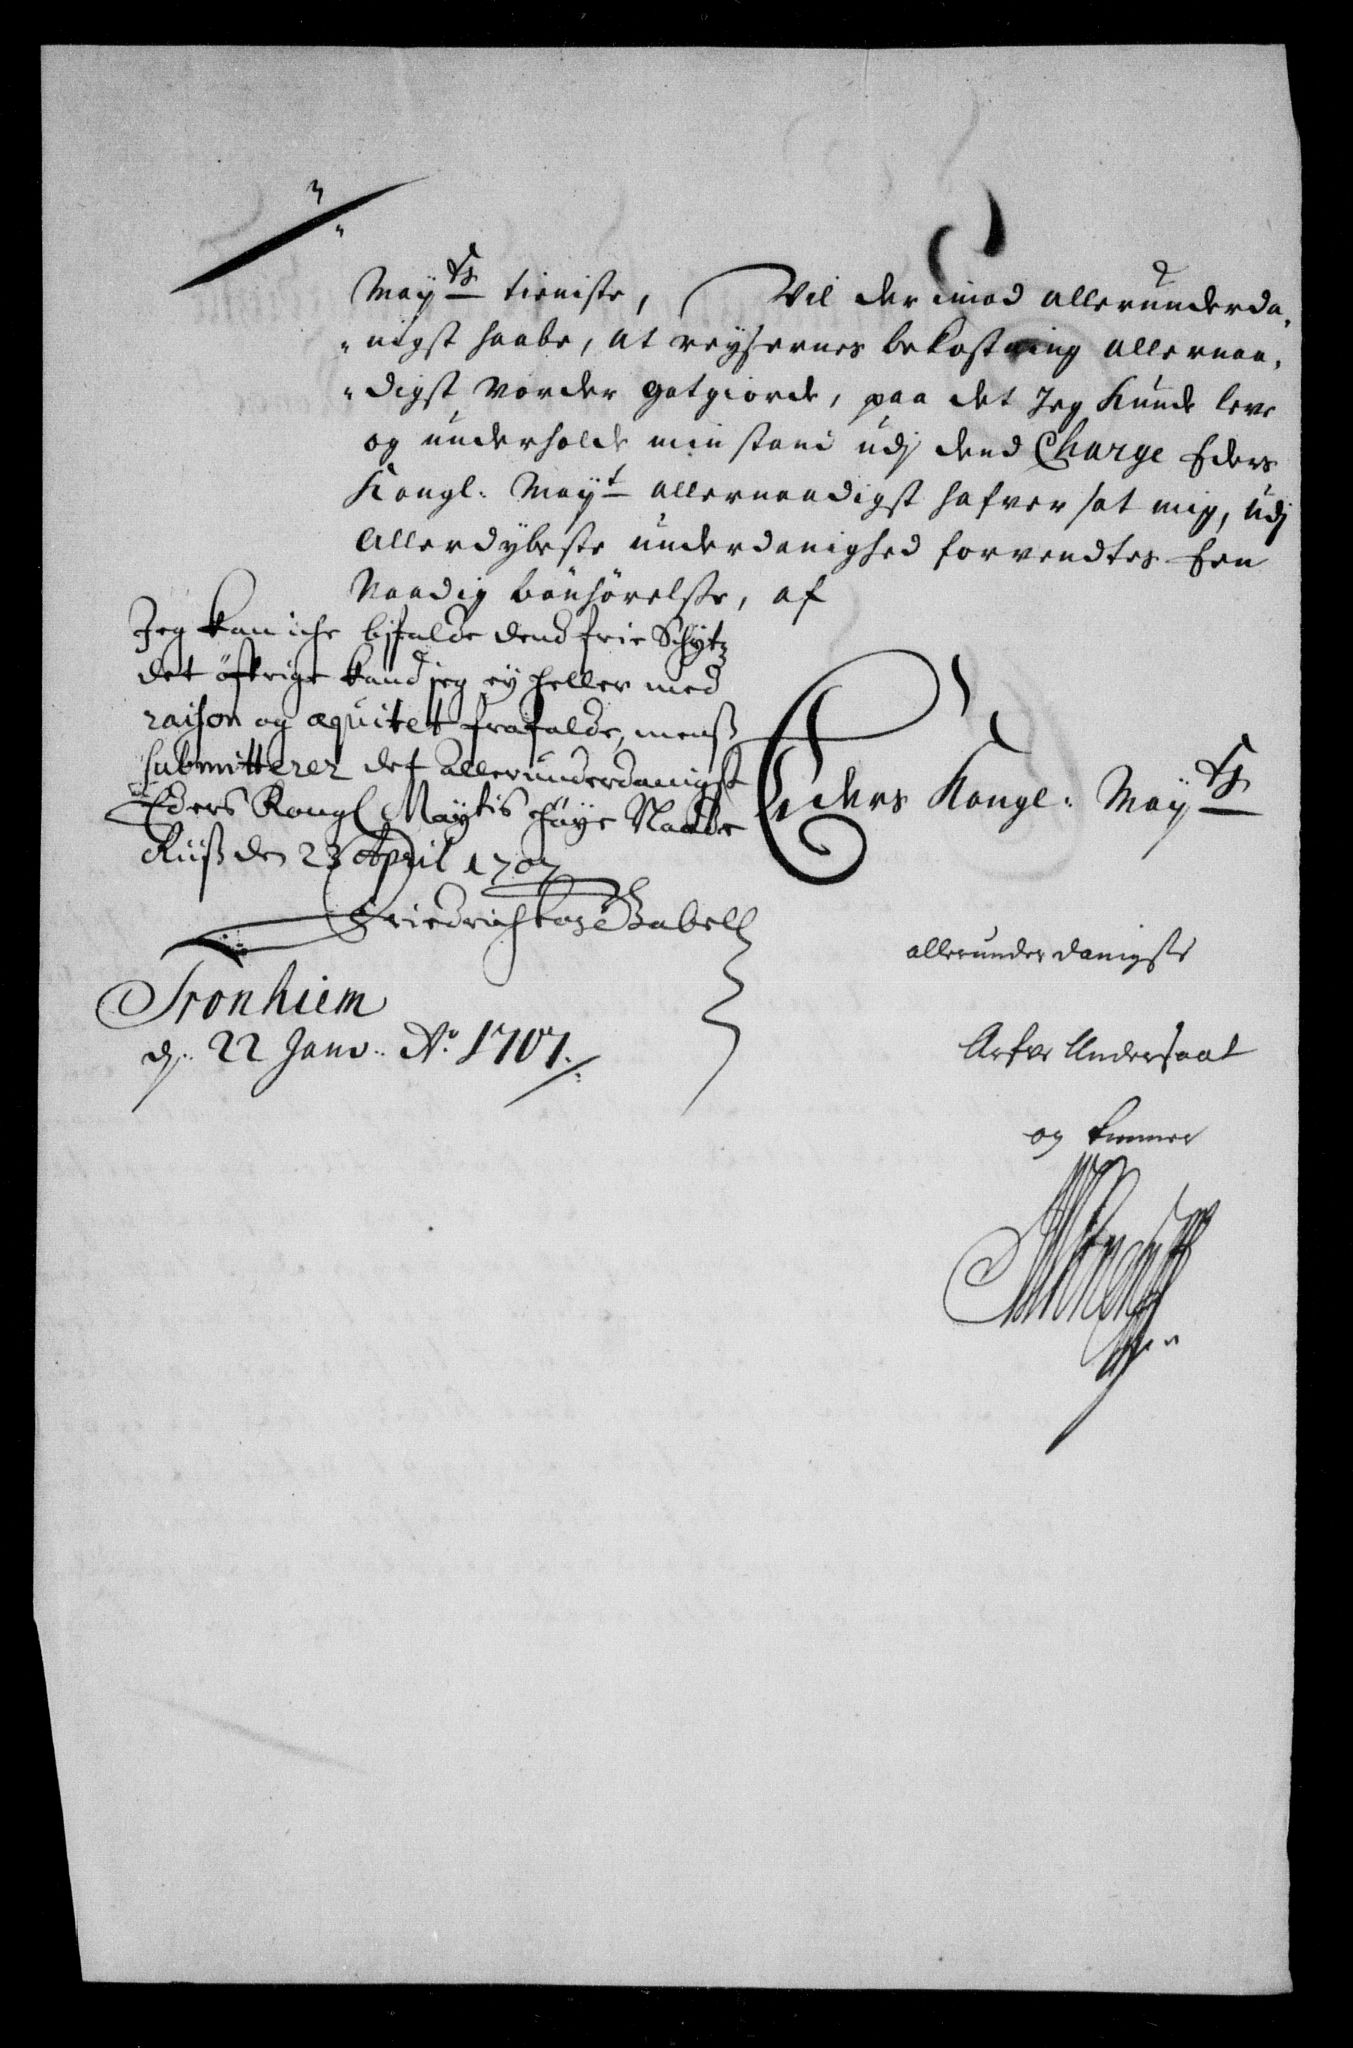 May^ts tieniste, Vil der imod allerunderda„
„nigst haabe, at reysernes bekostning allernaa„
„digst vorder gotgiorde, paa det Jeg kunde leve
og underholde min stand udj dend Charge Eders
Kongl: May^t allernaadigst hafver sat mig, udj
Allerdybeste underdanighed forvendtes Een
Naadig bönhörelse, af
Jeg kan iche bifalde dend frie Schytz
det öfrige kand jeg ey heller med
raison og æquitet frafalde, menß
submitterer det allerunderdanigst
Eders Kongl Maytts Höye Naade
Riiß den 23 April 1707
Friedrich Kaas Gabell
Eders Kongl: May^ts
allerunderdanigste
Tronhiem
d. 22 Janv. Ao 1707.
Arfve Undersaat
og